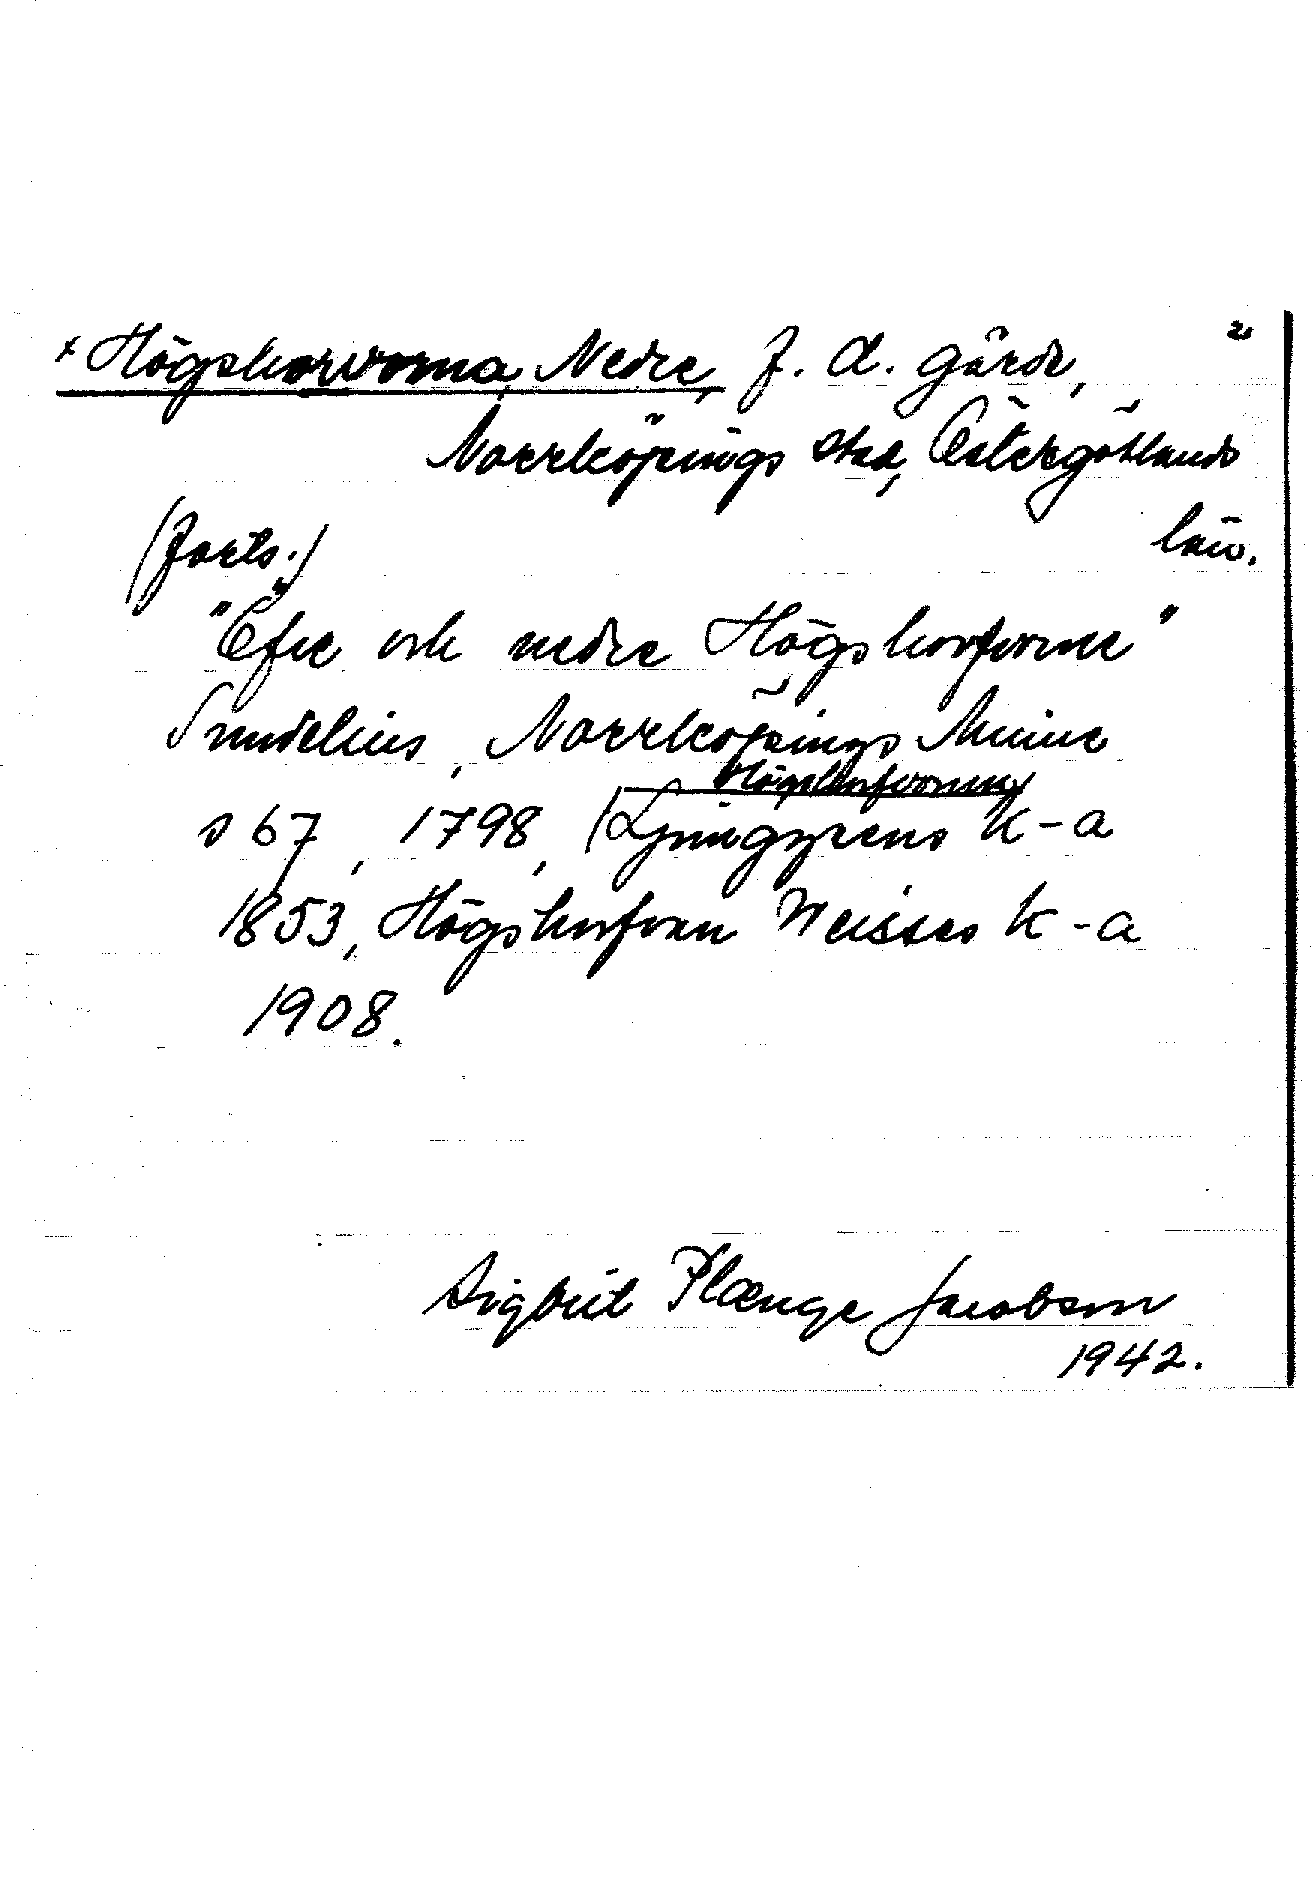 x Högskorvorna, Nedre, f. d. gärde, 2
Norrköpings stad, Östergötlands
län.
(forts.)
"Öfre och nedre Högskorforne"
Sundelius, Norrköpings Minne
Högskorforne
s 67, 1798, (Ljunggrens K-a
1853, Högskorfvan Weisses K-a
1908.
Sigbrit Plænge Jacobson
1942.